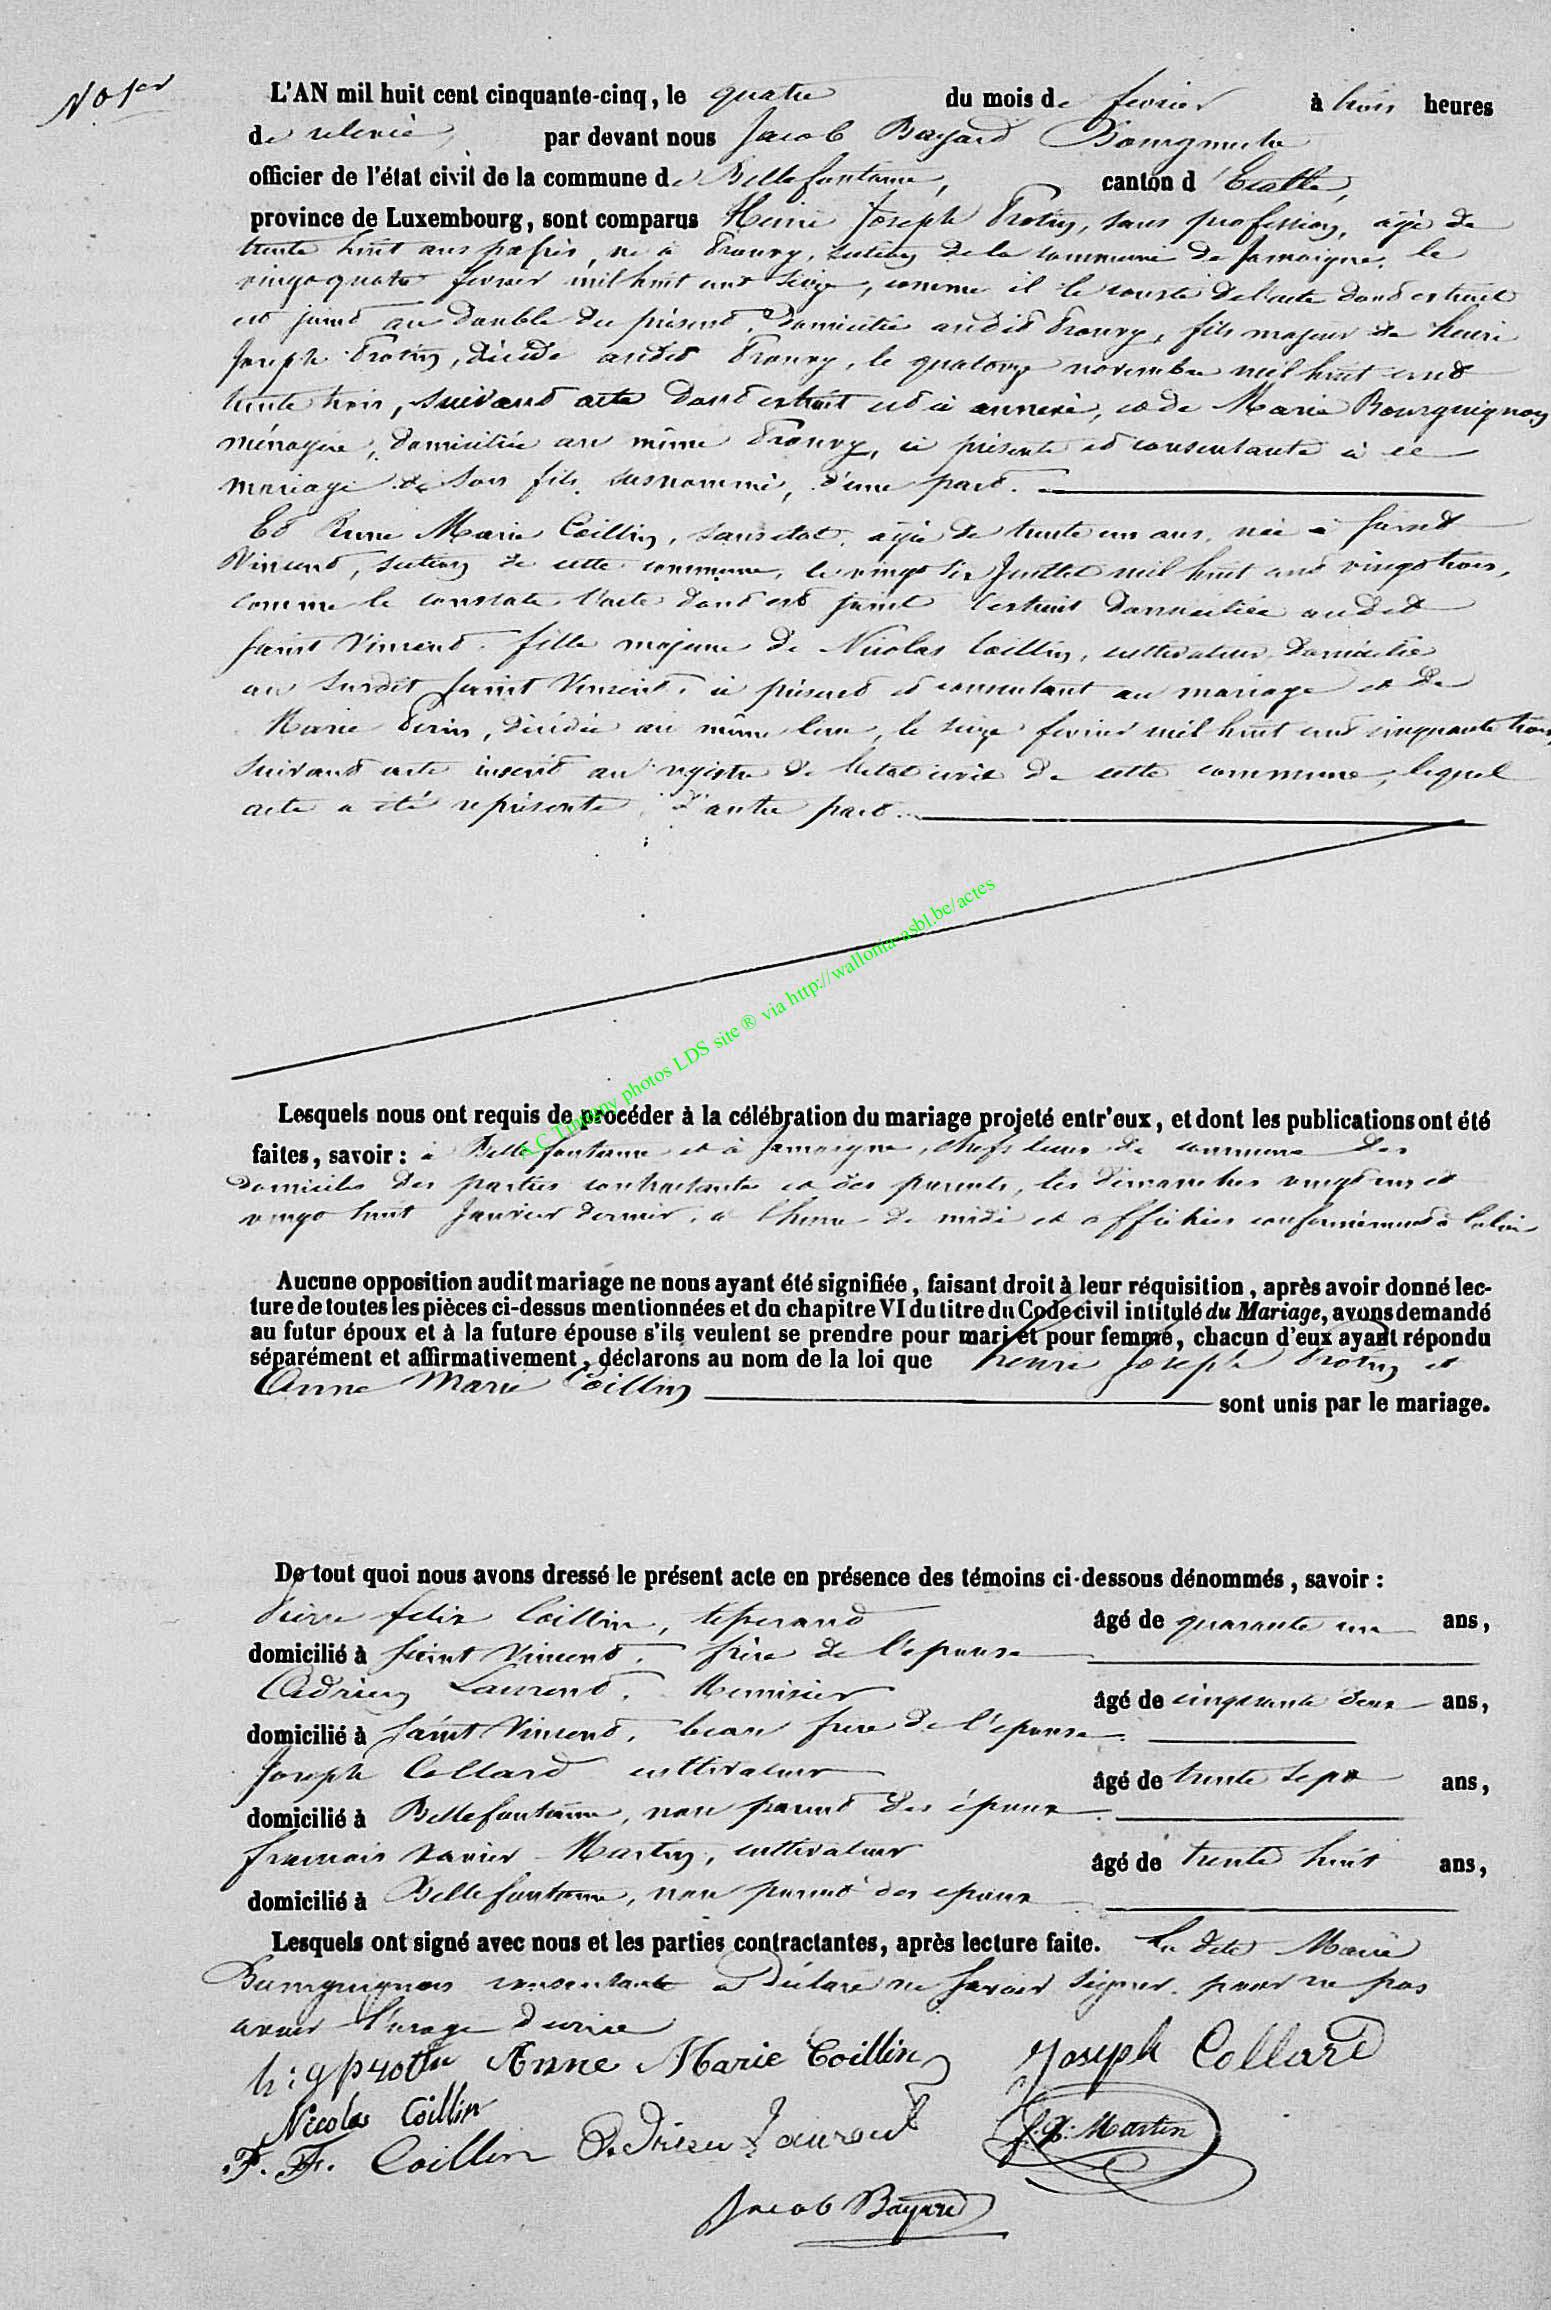 No 1er
L'AN mil huit cent cinquante-cinq, le quatre du mois de fevrier à trois heures
de relevée, par devant nous Jacob Bayard Bourgmestre
officier de l'état civil de la commune de Bellefontaine, canton d'Etalle,
province de Luxembourg, sont comparus Henri Joseph Protin, sans profession, âgé de
trente huit ans passés, né à Prouvy, section de la commune de Jamoigne, le
vingt quatre fevrier mil huit cent seize, comme il le conste de l'acte dont extrait
est joint au double du présent, domicilié audit Prouvy, fils majeur de henri
Joseph Protin, décédé audit Prouvy, le quatorze novembre mil huit cent
trente trois, suivant acte dont extrait est ci annexé, et de Marie Bourguignon
ménagère, domiciliée au même Prouvy, ci présente et consentante à ce
mariage de son fils susnommé, d'une part.
Et Anne Marie Coillin, sans etat, agée de trente un ans, née à Saint
Vincent, section de cette commune, le vingt six Juillet mil huit cent vingt trois,
comme le constate l'acte dont est joint l'extrait domiciliée audit
Saint Vincent, fille majeure de Nicolas Coillin, cultivateur domicilié
au susdit Saint Vincent, ci présent et consentant au mariage et de
Marie Perin, décédée au même lieu, le seize fevrier mil huit cent cinquante trois,
suivant acte inscrit au registre de l'etat civil de cette commune, lequel
acte a été représenté, d'autre part.
A.C Tintigny photos LDS site ® via http://wallonia-asbl.be/actes
Lesquels nous ont requis de procéder à la célébration du mariage projeté entr'eux, et dont les publications ont été
faites, savoir : à Bellefontaine et à Jamoigne, chefs lieux de commune des
domiciles des parties contractantes et des parents, les dimanches vingt un et
vingt huit Janvier dernier, à l'heure de midi et affichées conformément à la loi
Aucune opposition audit mariage ne nous ayant été signifiée, faisant droit à leur réquisition, après avoir donné lec-
ture de toutes les pièces ci-dessus mentionnées et du chapitre VI du titre du Code civil intitulé du Mariage, avons demandé
au futur époux et à la future épouse s'ils veulent se prendre pour mari et pour femme, chacun d'eux ayant répondu
séparément et affirmativement, déclarons au nom de la loi que henri Joseph Protin et
Anne Marie Coillin sont unis par le mariage.
De tout quoi nous avons dressé le présent acte en présence des témoins ci-dessous dénommés, savoir :
Pierre felix Coillin, tisserand âgé de quarante un ans,
domicilié à Saint Vincent, frère de l'epouse
Adrien Laurent, Menuisier âgé de cinquante deux ans,
domicilié à Saint Vincent, beau frere de l'epouse.
Joseph Collard cultivateur âgé de trente sept ans,
domicilié à Bellefontaine, non parent des époux
francois Xavier Martin, cultivateur âgé de trente huit ans,
domicilié à Bellefontaine, non parent des epoux
Lesquels ont signé avec nous et les parties contractantes, après lecture faite. La dite Marie
Bourguignon consentante a déclaré ne savoir signer pour ne pas
avoir l'usage d'ecrire
h: j protin Anne Marie Coillin Joseph Collard
Nicolas Coillin
P. F. Coillin Adrien Laurent f. X. Martin
Jacob Bayard